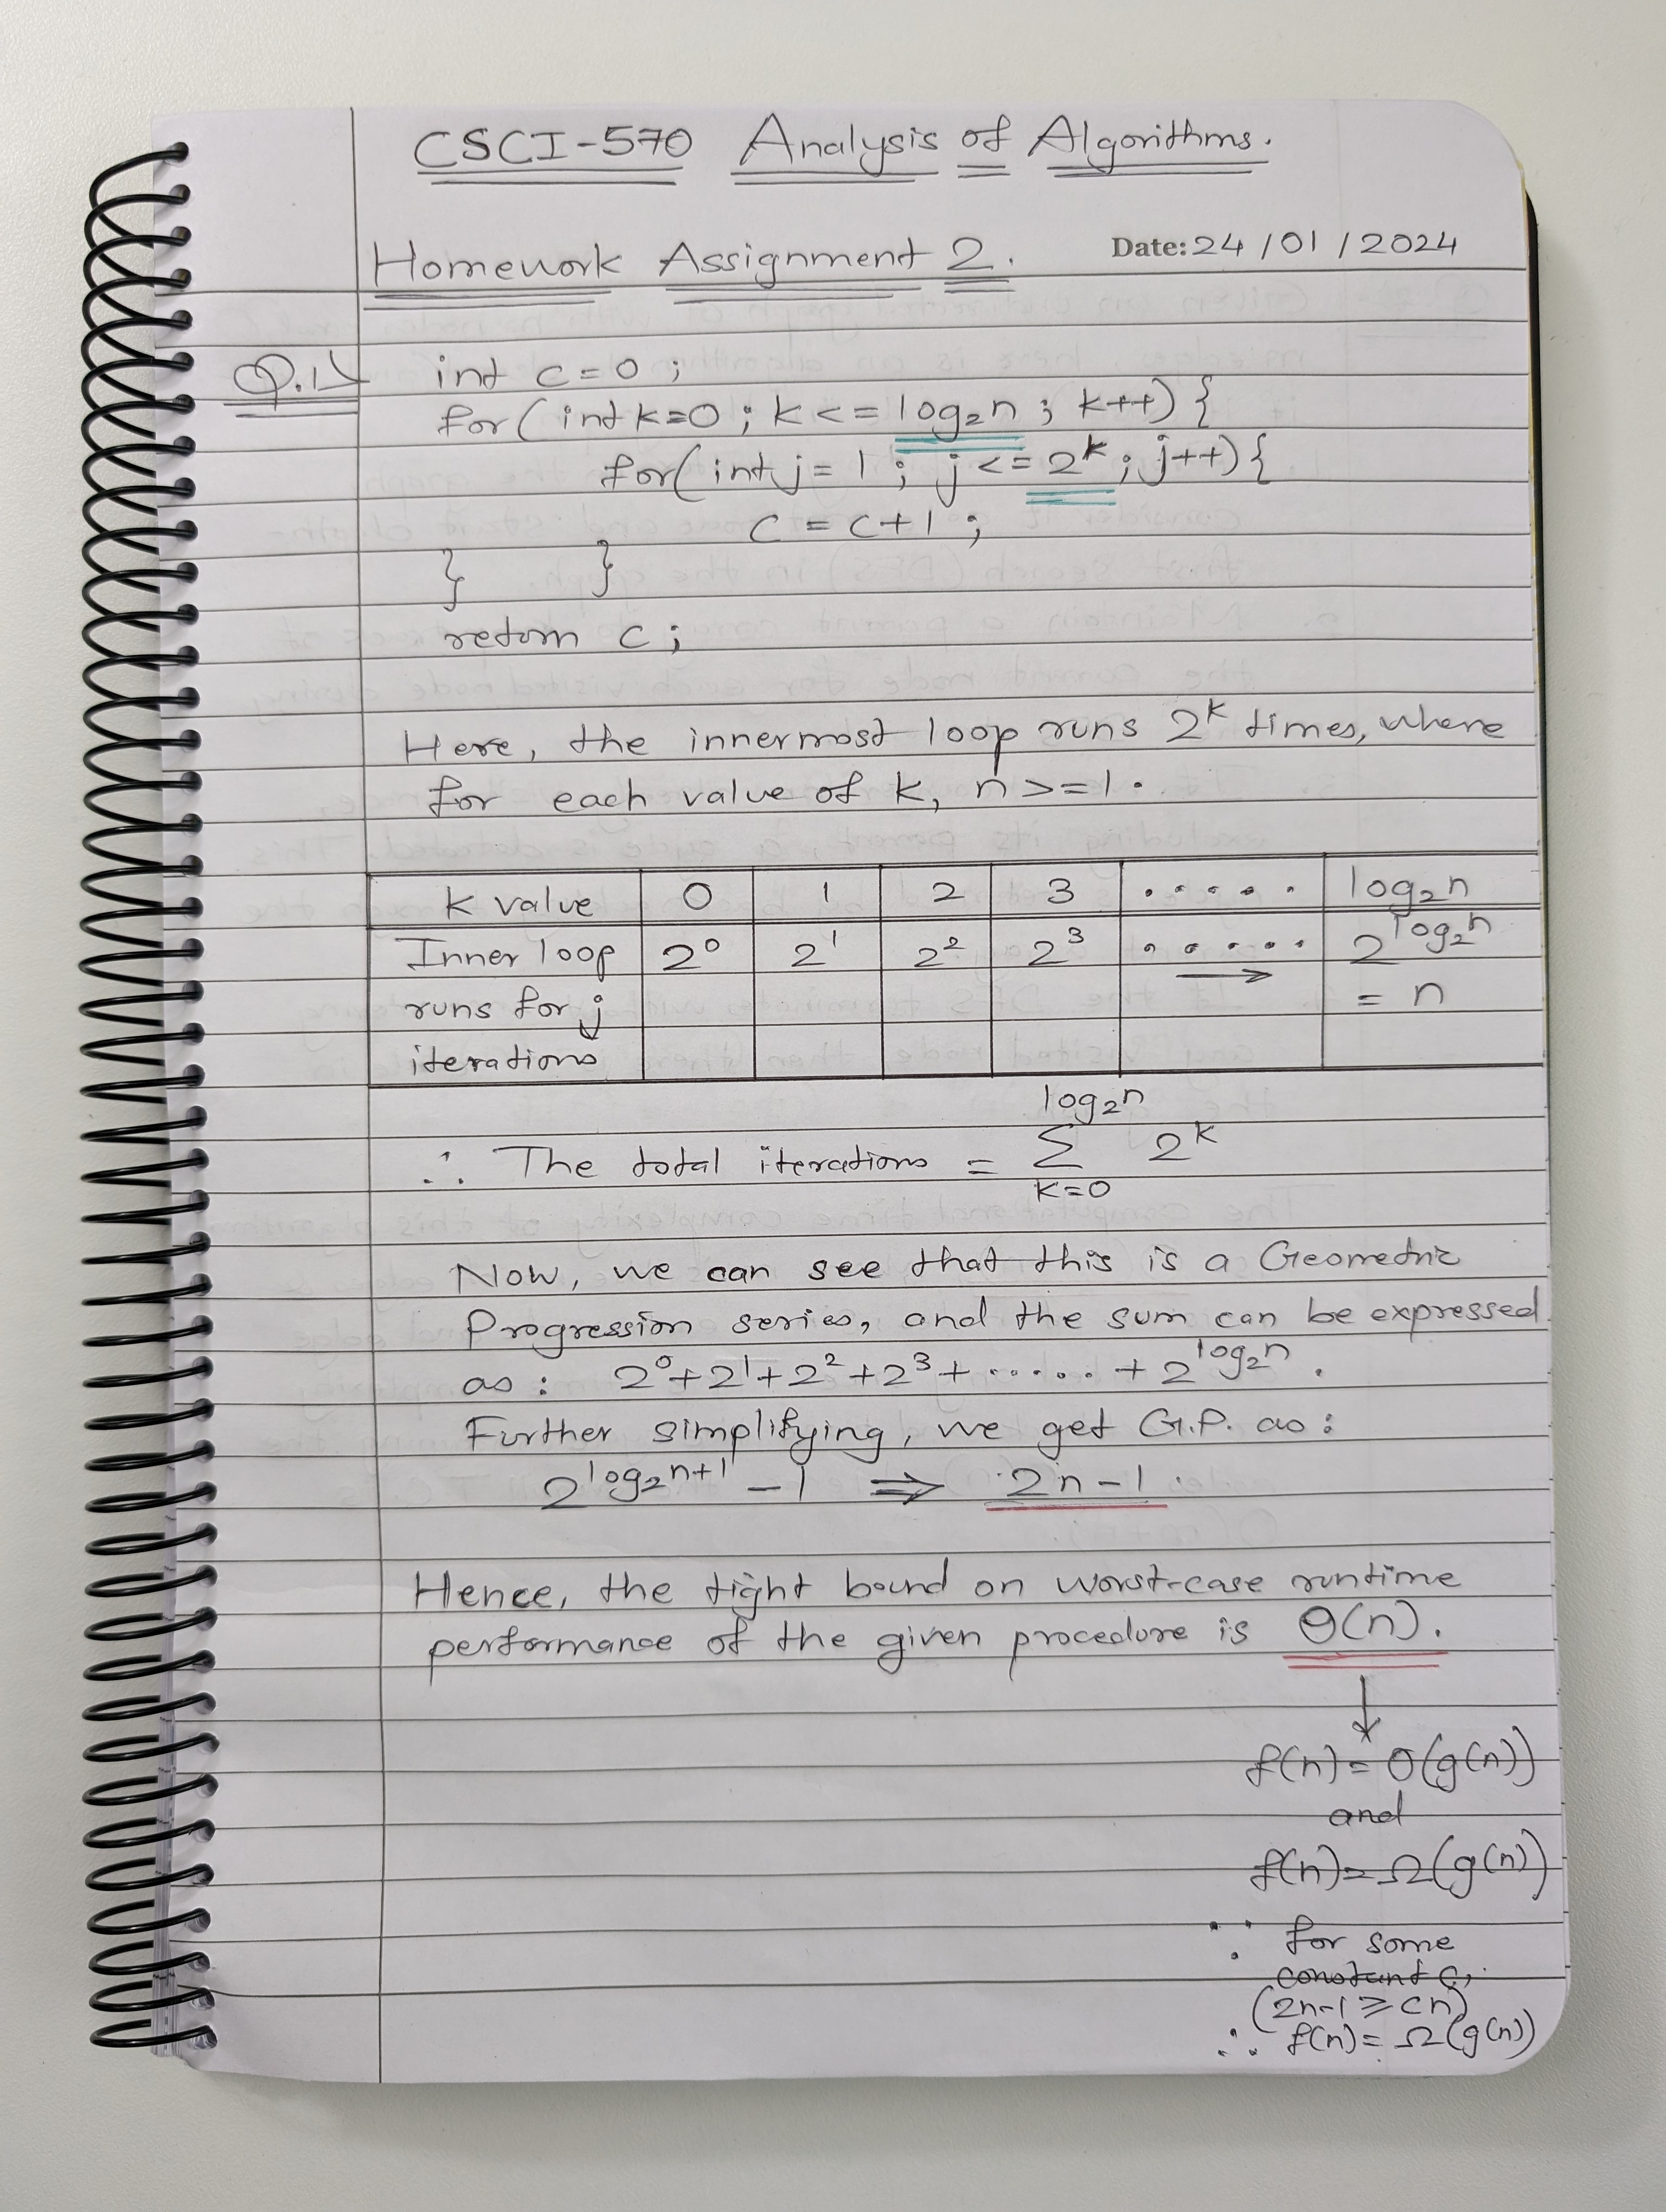 CSCI-570 Analysis of Algorithms.
Homework Assignment 2.
Date: 24/01/2024
Q.1
int c=0;
for(int k=0; k<=log₂n; k++){
for(int j=1; j<=2ᵏ; j++){
c = c+1;
} }
return c;
Here, the innermost loop runs 2ᵏ times, where
for each value of k, n>=1.
k value 0 1 2 3 ..... log₂n
Inner loop 2⁰ 2¹ 2² 2³ ..... 2^log₂n
runs for j → = n
iterations
log₂n
∴ The total iterations = Σ 2ᵏ
k=0
Now, we can see that this is a Geometric
Progression series, and the sum can be expressed
as: 2⁰+2¹+2²+2³+.....+2^log₂n.
Further simplifying, we get G.P. as:
2^log₂n+1 - 1 ⇒ 2n-1.
Hence, the tight bound on worst-case runtime
performance of the given procedure is Θ(n).
↓
f(n)=O(g(n))
and
f(n)=Ω(g(n))
∵ for some
constant c,
(2n-1≥cn)
∴ f(n)=Ω(g(n))